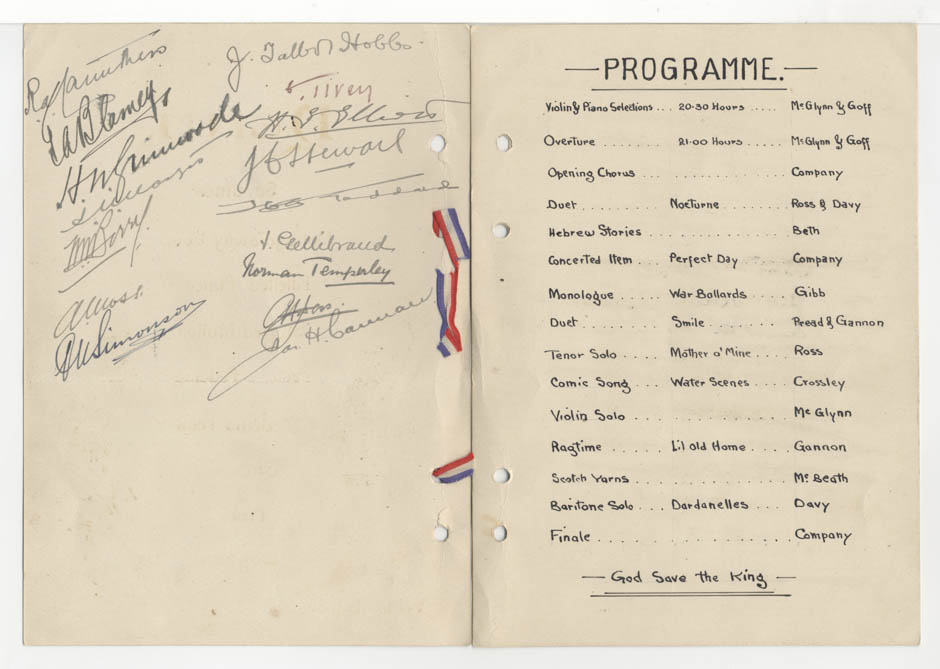 R. A. Carruthers
J. Talbot Hobbs.
E. Tivey
T. A. Blamey
H. E. Elliott
H. W. Grimwade
J C Stewart
J. Gellibrand
Norman Temperley
Jas. H. Cannan
PROGRAMME.
Violin & Piano Selections ... 20·30 Hours ..... McGlynn & Goff
Overture ........ 21·00 Hours ..... McGlynn & Goff
Opening Chorus ... Company
Duet ........ Nocturne ...... Ross & Davy
Hebrew Stories ... Beth
Concerted Item ... Perfect Day .... Company
Monologue ...... War Ballards .... Gibb
Duet ........ Smile ........ Peead & Gannon
Tenor Solo .... Mother o' Mine .... Ross
Comic Song ... Water Scenes .... Crossley
Violin Solo ... Mc Glynn
Ragtime ...... Lil Old Home .... Gannon
Scotch Yarns ... Mc Beath
Baritone Solo ... Dardanelles .... Davy
Finale ... Company
— God Save the King —